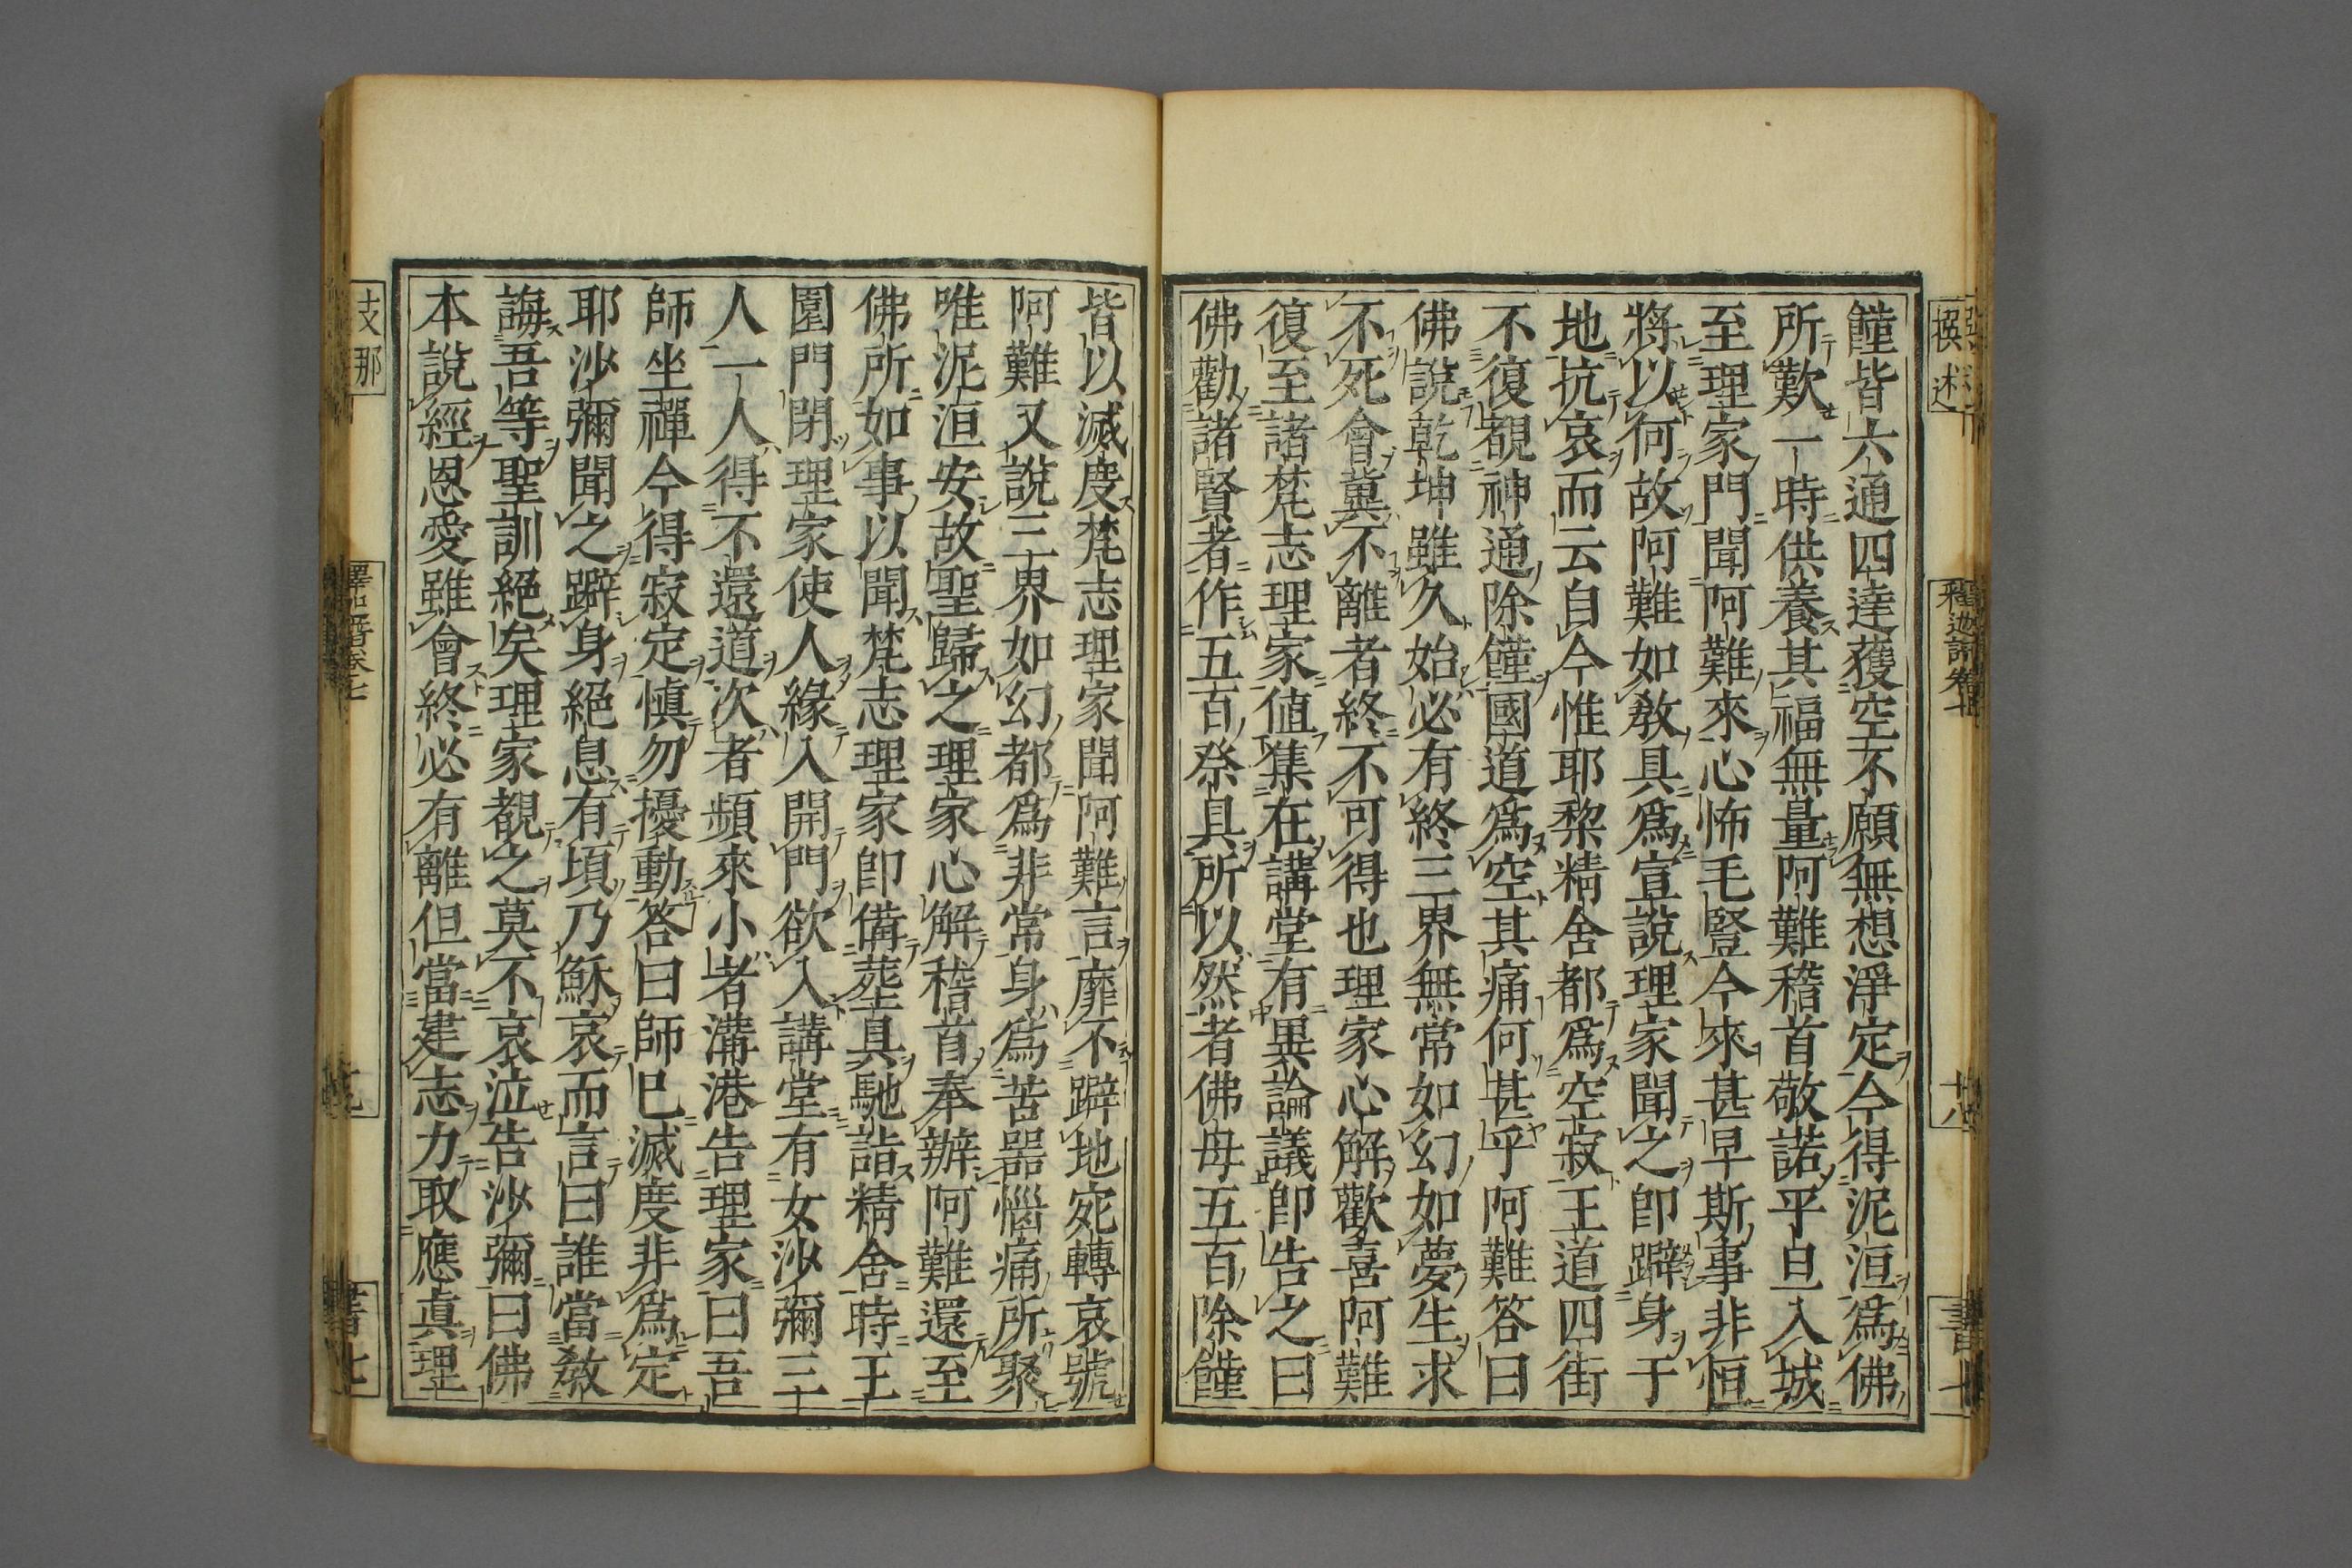 饉皆六通四達獲空不願無想淨定今得泥洹爲佛
所歎一時供養其福無量阿難稽首敬諾平旦入城
至理家門聞阿難來心怖毛豎今來甚早斯事非恒
將以何故阿難如敎具爲宣說理家聞之卽躃身于
地抗哀而云自今惟耶黎精舍都爲空寂王道四街
不復覩神通除饉國道爲空其痛何甚乎阿難答曰
佛說乾坤雖久始必有終三界無常如幻如夢生求
不死會冀不離者終不可得也理家心解歡喜阿難
復至諸梵志理家値集在講堂有異論議卽告之曰
佛勸諸賢者作五百祭具所以然者佛母五百除饉
皆以滅度梵志理家聞阿難言靡不躃地宛轉哀號
阿難又說三界如幻都爲非常身爲苦器惱痛所聚
唯泥洹安故聖歸之理家心解稽首奉辦阿難還至
佛所如事以聞梵志理家卽備葬具馳詣精舍時王
園門閉理家使人緣入開門欲入講堂有女沙彌三
人一人得不還道次者頻來小者溝港告理家曰吾
師坐禪今得寂定愼勿擾動答曰師已滅度非爲定
耶沙彌聞之躃身絕息有頃乃穌哀而言曰誰當敎
誨吾等聖訓絕矣理家覩之莫不哀泣告沙彌曰佛
本說經恩愛雖會終必有離但當建志力取應眞理
撰述
釋迦譜卷七
十八
書七
支那